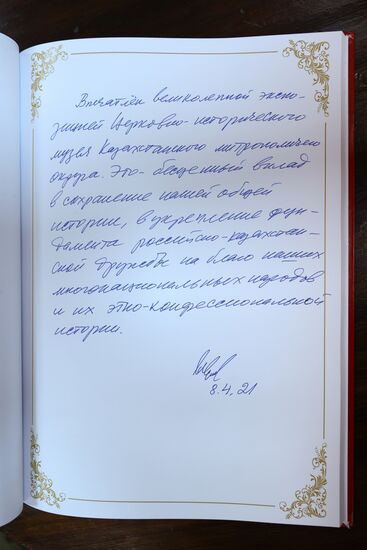 Впечатлён великолепной экспо-
зицией Церковно-исторического
музея Казахстанского митрополичьего
округа. Это - бесценный вклад
в сохранение нашей общей
истории, в укрепление фун-
дамента российско-казахстан-
ской дружбы на благо наших
многонациональных народов
и их этно-конфессиональной
истории.
8.4.21